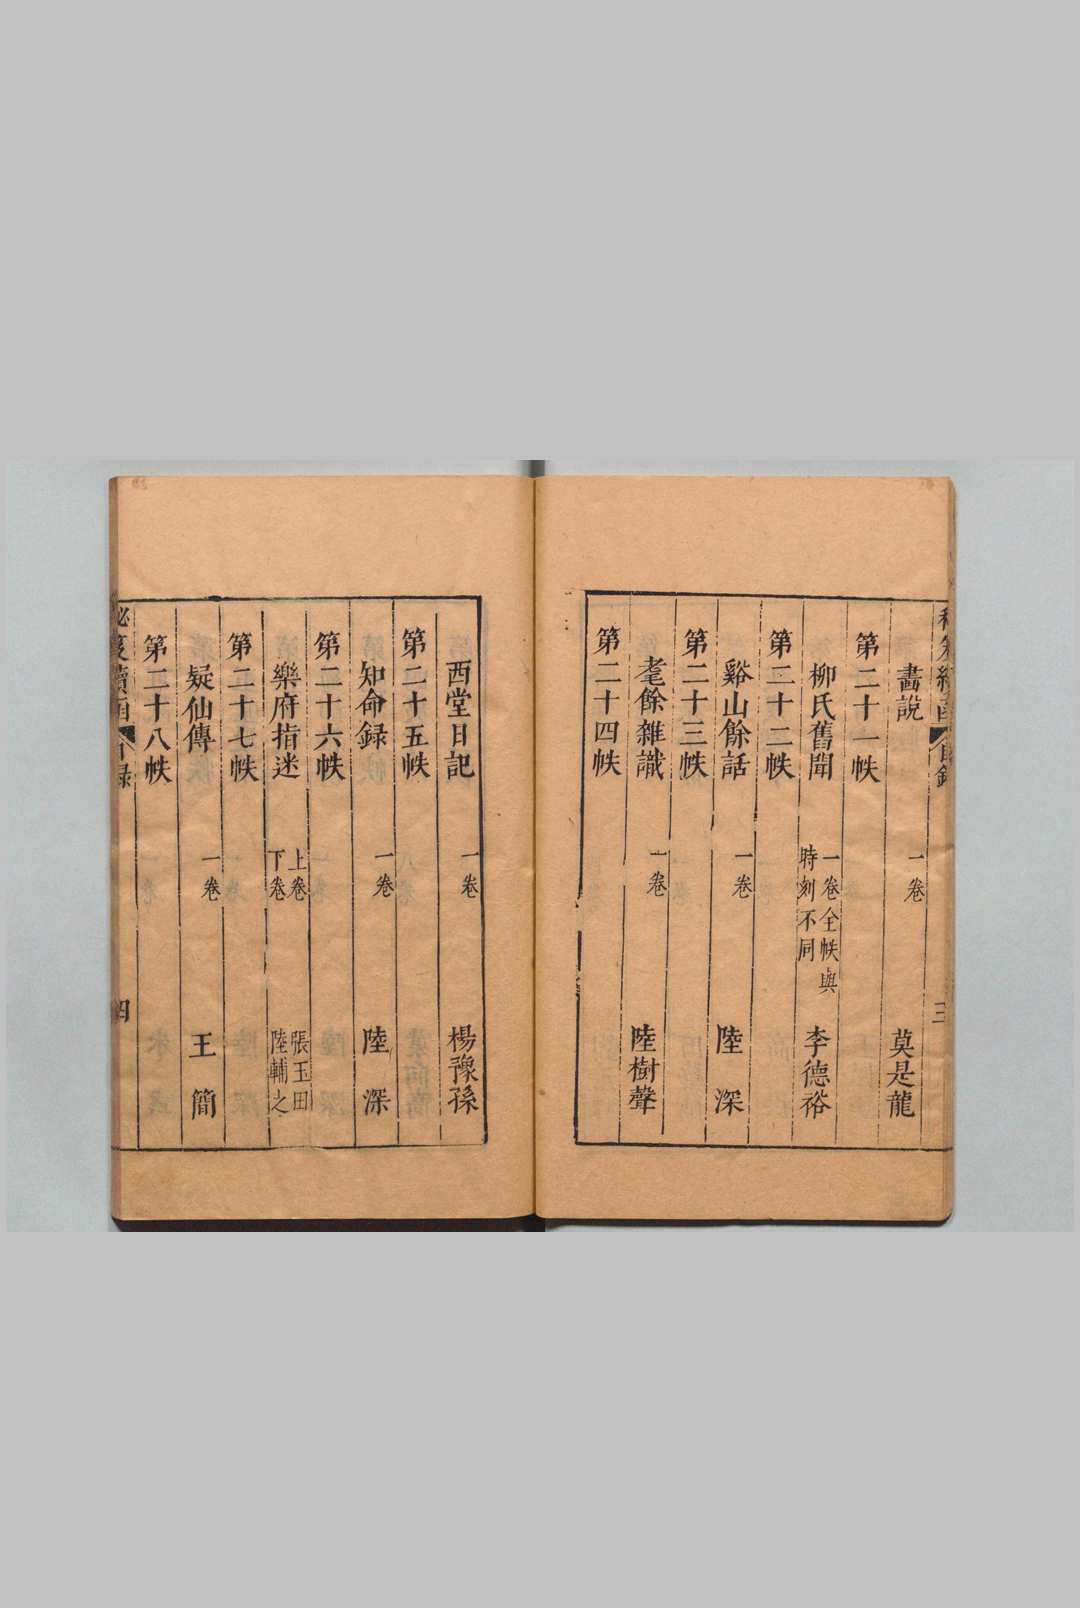 畵說 一卷 莫是龍
第二十一帙
柳氏舊聞 一卷全帙與時刻不同 李德裕
第二十二帙
谿山餘話 一卷 陸深
第二十三帙
耄餘雜識 一卷 陸樹聲
第二十四帙
西堂日記 一卷 楊豫孫
第二十五帙
知命録 一卷 陸深
第二十六帙
樂府指迷 上卷下卷 張玉田陸輔之
第二十七帙
疑仙傳 一卷 王簡
第二十八帙
秘笈續函 目録 四